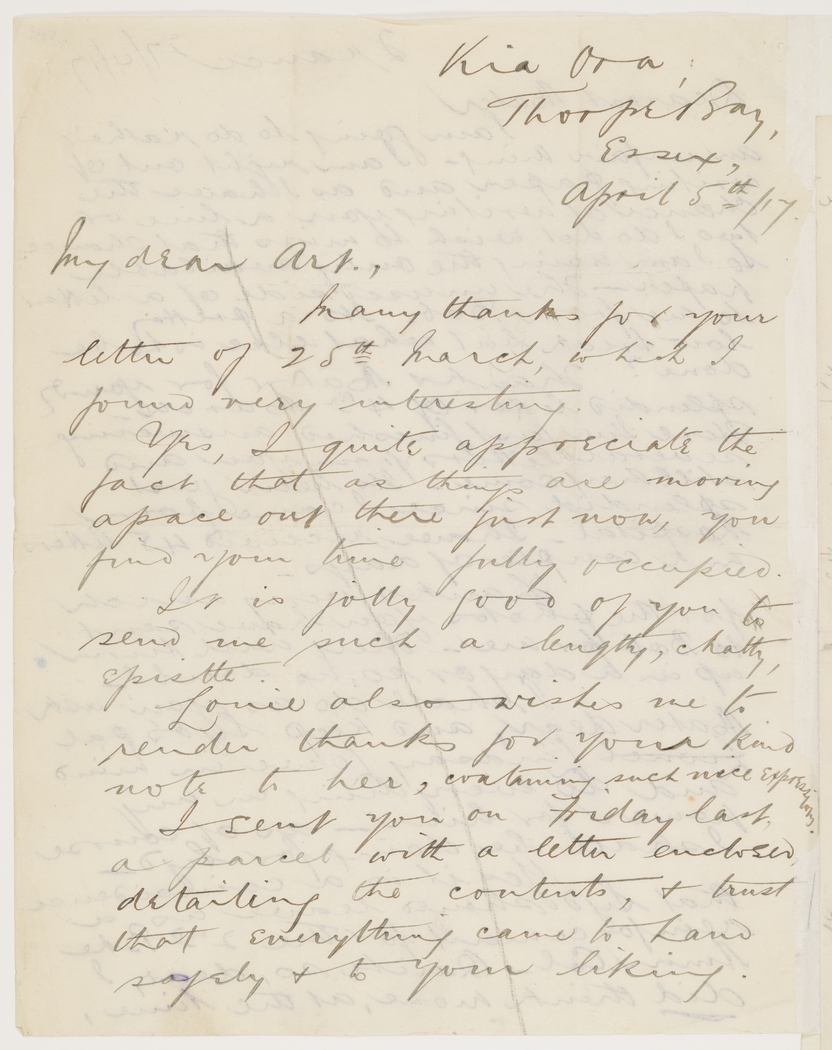 Kia Ora,
Thorpe Bay,
Essex,
April 5th/17.
My dear Art.,
Many thanks for your
letter of 25th March, which I
found very interesting.
Yes, I quite appreciate the
fact that as things are moving
apace out there just now, you
find your time fully occupied.
It is jolly good of you to
send me such a lengthy, chatty,
epistle.
Louie also wishes me to
render thanks for your kind
note to her, containing such nice expressions.
I sent you on Friday last,
a parcel with a letter enclosed,
detailing the contents, & trust
that everything came to hand
safely & to your liking.